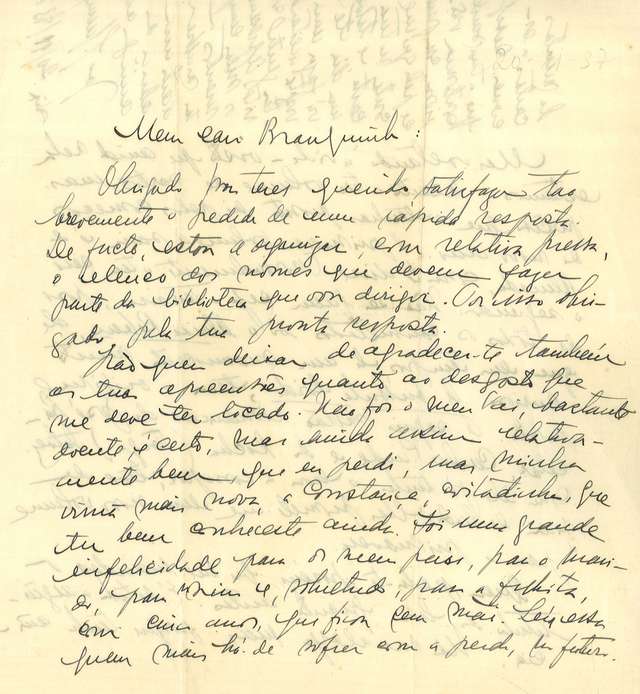 Meu caro Branquinho:
Obrigado por teres querido satisfazer tão
brevemente o pedido de uma rápida resposta.
De facto, estou a organizar, com relativa pressa,
o elenco dos nomes que devem fazer
parte da biblioteca que vou dirigir. Por isso obri-
gado pela tua pronta resposta.
Não quero deixar de agradecer-te também
as tuas apreensões quanto ao desgosto que
me deve ter tocado. Não foi o meu Pai, bastante
doente é certo, mas ainda assim relativa-
mente bem, que eu perdi, mas minha
irmã mais nova, a Constança, coitadinha, que
tu bem conheceste ainda. Foi uma grande
infelicidade para os meus pais, para o mari-
do, para mim e, sobretudo, para a filhita,
com cinco anos, que ficou sem mãe. Será essa
quem mais há-de sofrer com a perda, no futuro.